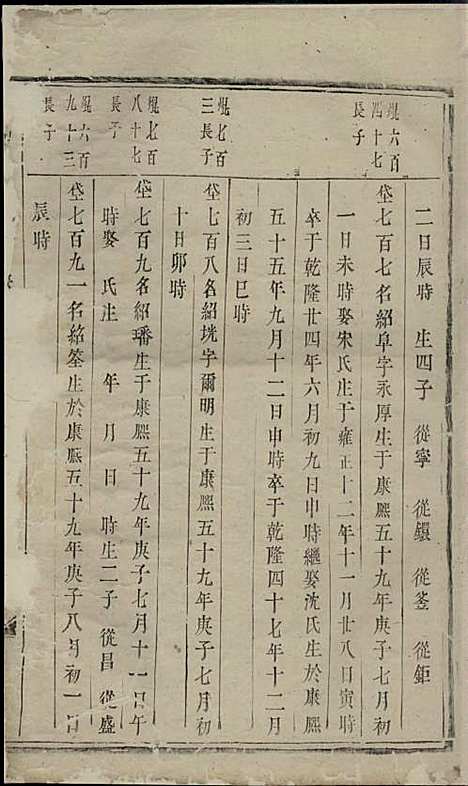 二日辰時　生四子　從寧　從鐶　從釜　從鉅
焜六百
四十七
長子
垈七百七名紹阜字永厚生于康熙五十九年庚子七月初
一日未時娶宋氏生于雍正十二年十一月廿八日寅時
卒于乾隆廿四年六月初九日申時繼娶沈氏生於康熙
五十五年九月十二日申時卒于乾隆四十七年十二月
初三日巳時
焜七百
三長子
垈七百八名紹垙字爾明生于康熙五十九年庚子七月初
十日卯時
焜七百
八十七
長子
垈七百九名紹璠生于康熙五十九年庚子七月十一日午
時娶　氏生　年　月　日　時生二子　從昌　從盛
焜六百
九十三
長子
垈七百九一名紹筌生於康熙五十九年庚子八月初一日
辰時